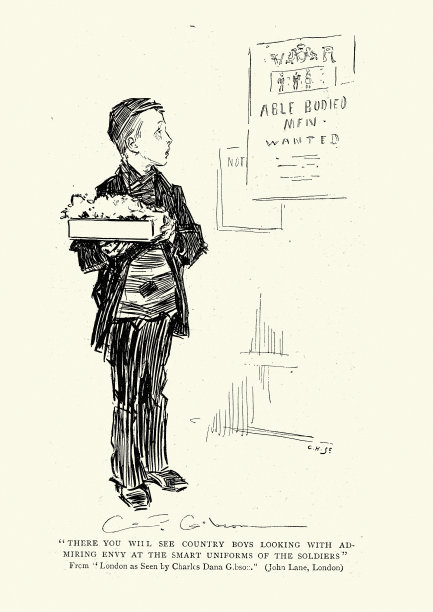 ABLE BODIED
MEN.
WANTED
NOT
C.H.Sc
C. D. Gibson
"THERE YOU WIIL SEE COUNTRY BOYS LOOKING WITH AD-
MIRING ENVY AT THE SMART UNIFORMS OF THE SOLDIERS"
From "London as Seen by Charles Dana Gibson." (John Lane, London)